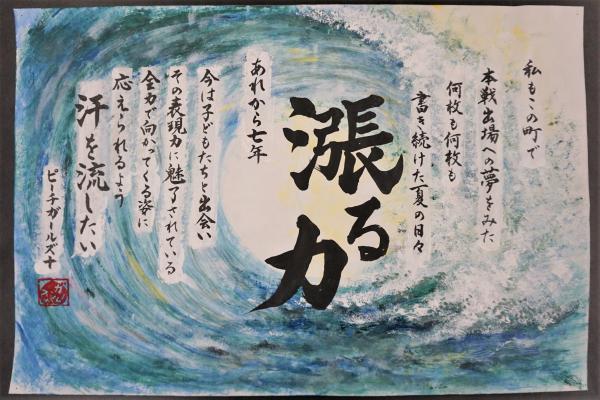 私もこの町で
本戦出場への夢をみた
何枚も何枚も
書き続けた夏の日々
漲る力
あれから七年
今は子どもたちと出会い
その表現力に魅了されている
全力で向かってくる姿に
応えられるよう
汗を流したい
ピーチガールズ十